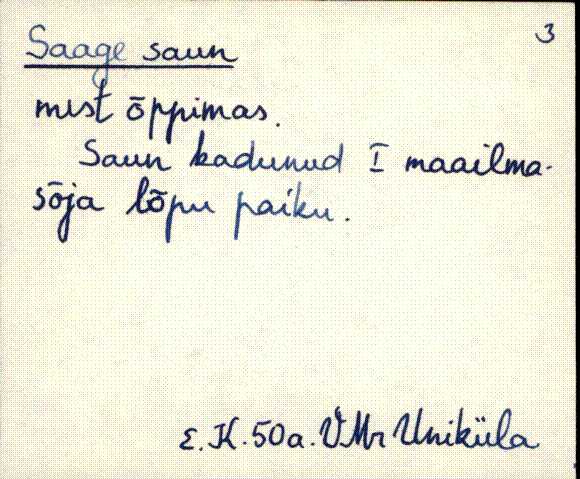 3
Saage saun
mist õppimas.
Saun kadunud I maailma-
sõja lõpu paiku.
E.K. 50a. VMr Uniküla